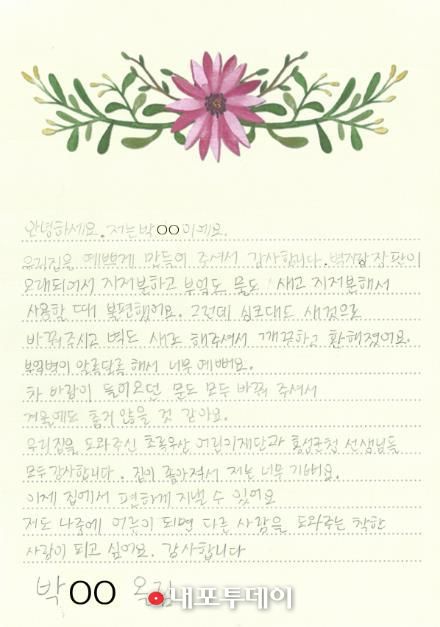 안녕하세요. 저는 박OO이에요.
우리집을 예쁘게 만들어 주셔서 감사합니다. 벽지랑 장판이
오래되어서 지저분하고 부엌도 물도 새고 지저분해서
사용할 때 불편했어요. 그런데 싱크대도 새것으로
바꿔주시고 벽도 새로 해주셔서 깨끗하고 환해졌어요.
부엌벽이 알록달록 해서 너무 예뻐요.
차 바람이 들어오던 문도 모두 바꿔 주셔서
겨울에도 춥지 않을 것 같아요.
우리집을 도와주신 초록우산 어린이재단과 홍성군청 선생님들
모두 감사합니다. 집이 좋아져서 저는 너무 기뻐요.
이제 집에서 편하게 지낼 수 있어요
저도 나중에 어른이 되면 다른 사람을 도와주는 착한
사람이 되고 싶어요. 감사합니다
박OO 올림
내포투데이